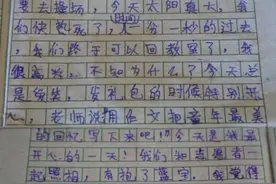 要去操场，今天太阳真大，我
们快热死了，时间一分一秒的过去
，我们终于可以回教室了，我
很高兴。不知为什么了今天总
是发笑，发礼包的时候特别开
心，老师说用作文把童年最美
的回忆写下来吧！今天是我最
开心的一天！我们和 有一
起照相，有抱了 ，我觉得